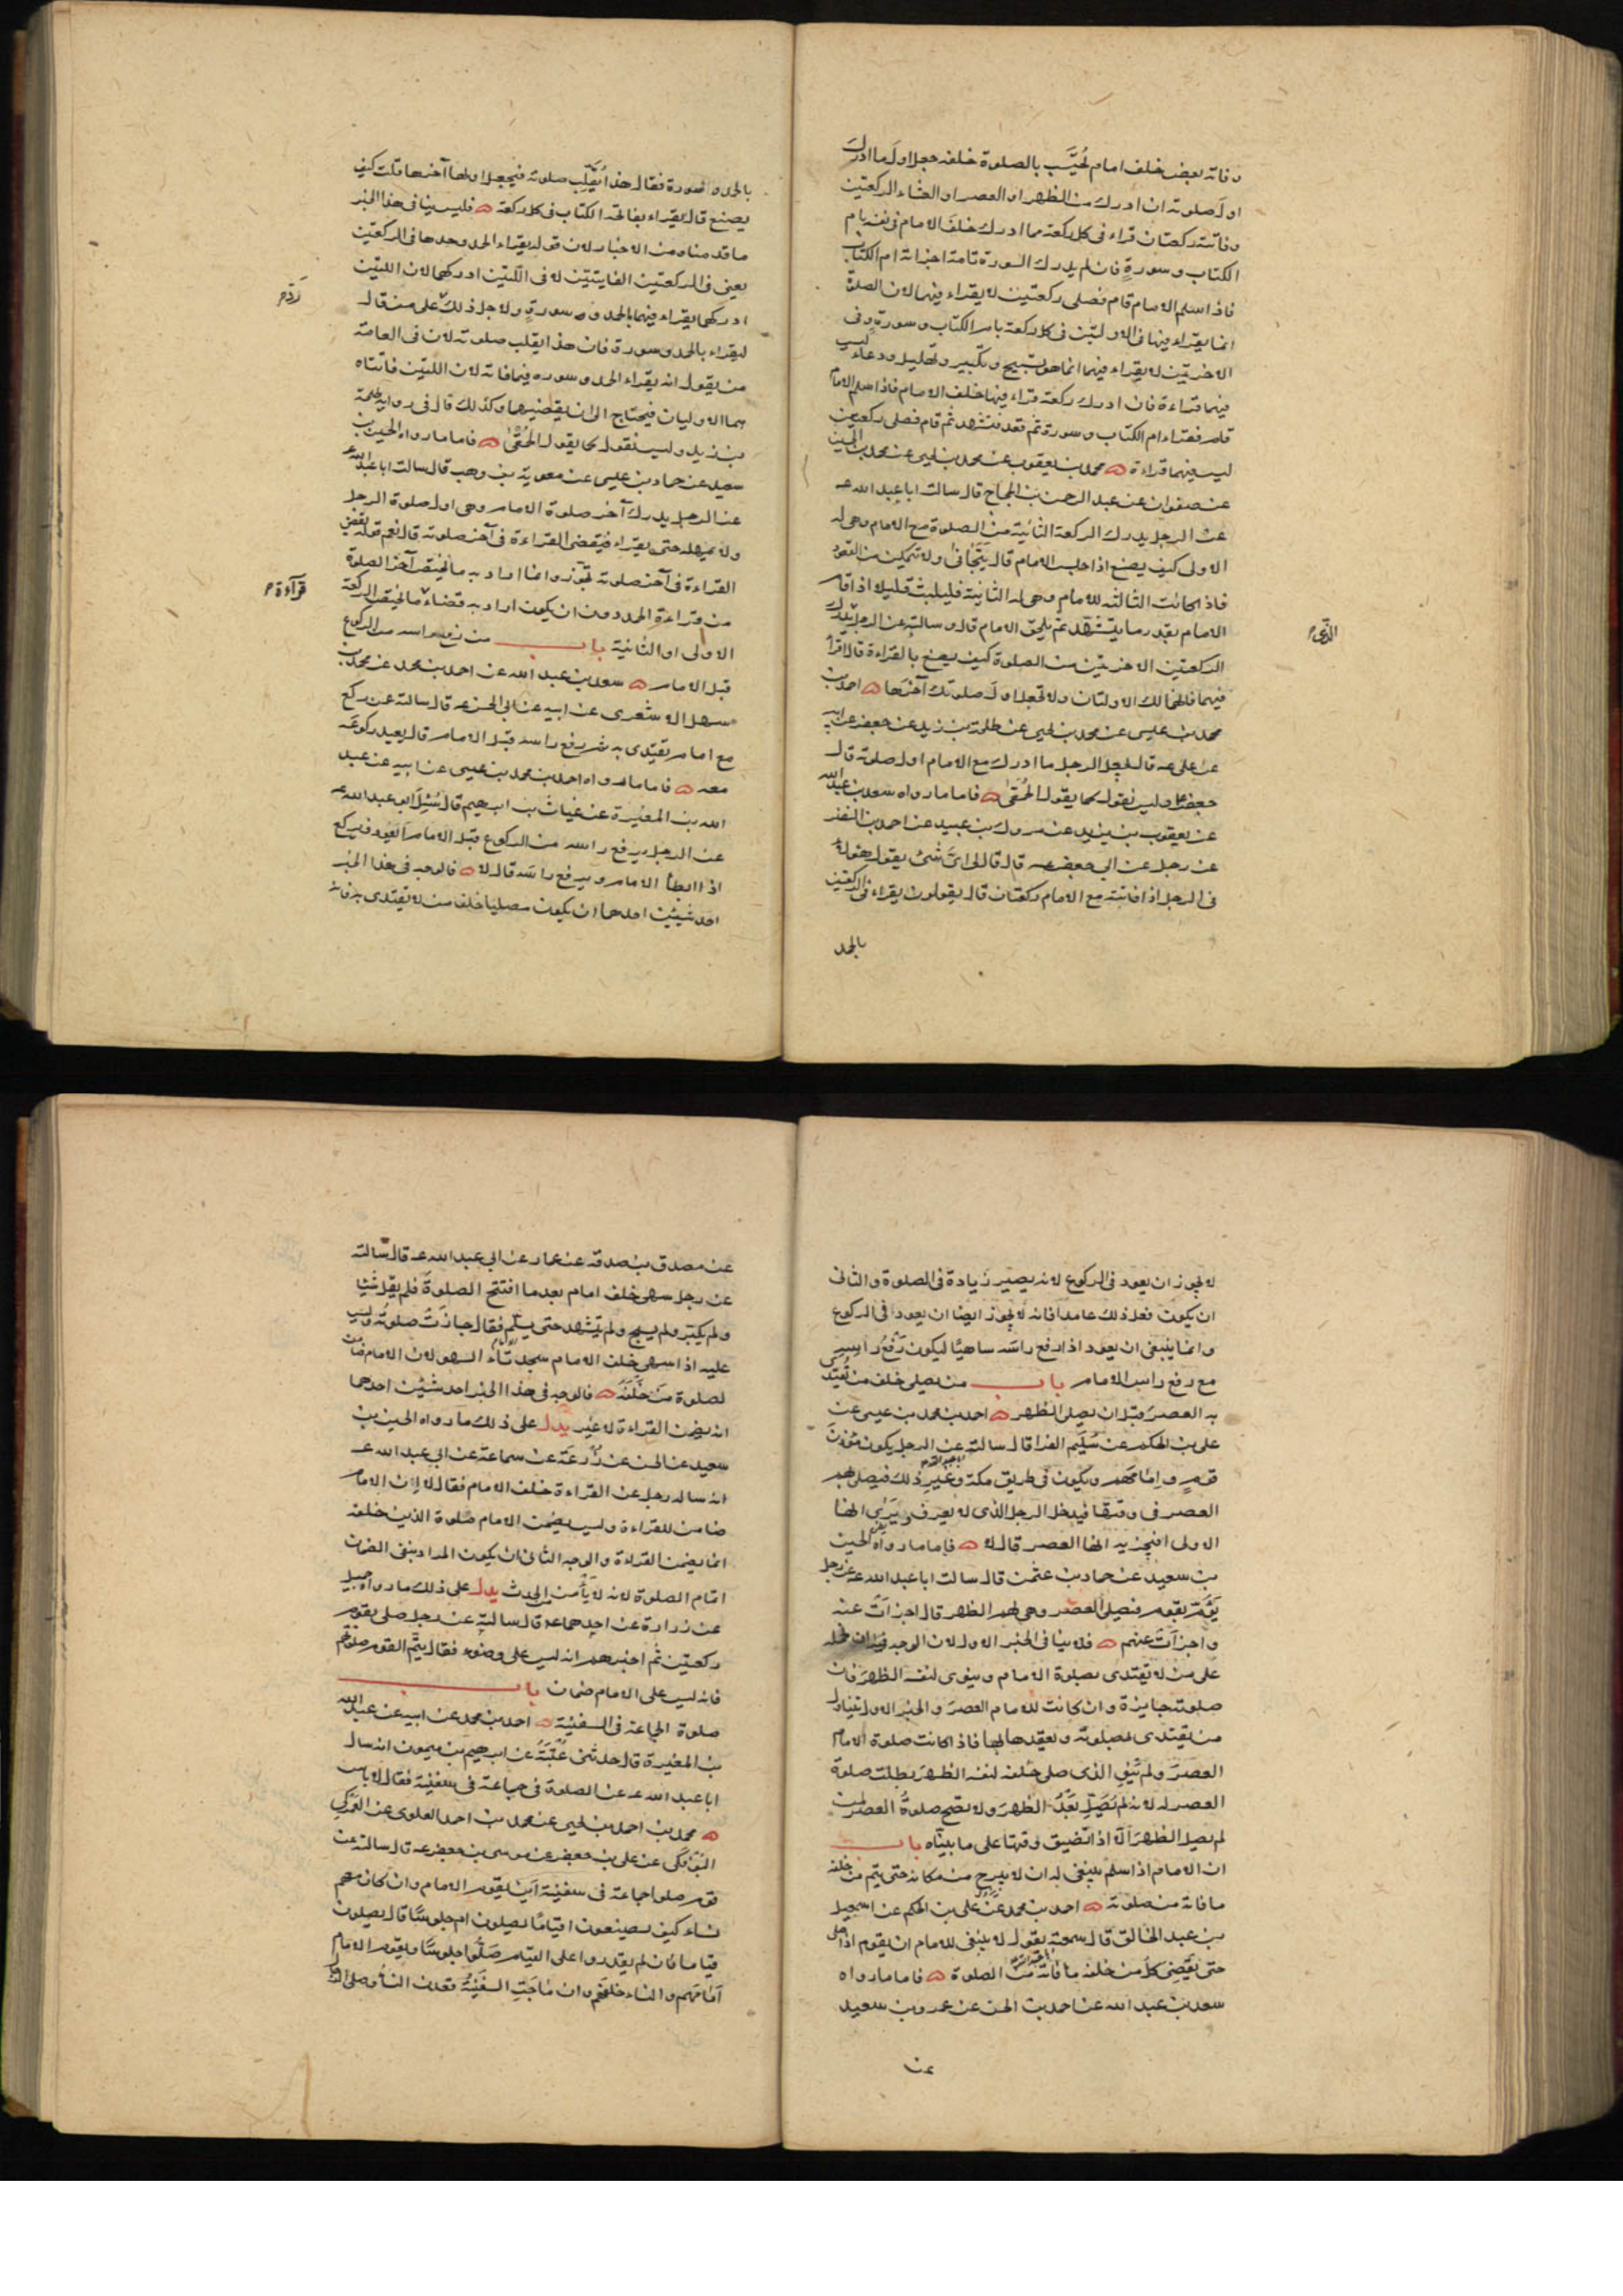 وفاته بعض خلف امام يُحتَسَب بالصلوة خلفه جعل اول ما ادرك
اولَ صلوته ان ادرك من الظهر او العصر او العشاء الركعتين
وفاتته ركعتان قراء فى كل ركعة مما ادرك خلف الامام فى نفسه بام
الكتاب وسورةٍ فان لم يدرك السورة تامة اجزاته ام الكتاب
فاذا سلم الامام قام فصلى ركعتين لا يقراء فيهما لان الصلوة
انما يقراء فيها فى الاولتين فى كل ركعة بام الكتاب وسورةٍ وفى
الاخرتين لا يقراء فيهما انما هو تسبيح وتكبير وتهليل ودعاء ليس
فيهما قراءة فان ادرك ركعة قراء فيها خلف الامام فاذا سلم الامام
قام فقراء ام الكتاب وسورة ثم قعد فتشهد ثم قام فصلى ركعتين
ليس فيهما قراءة محمد بن يعقوب عن محمد بن يحيى عن محمد بن الحسين
عن صفوان عن عبد الرحمن بن الحجاج قال سالت ابا عبد الله عـ
عن الرجل يدرك الركعة الثانية من الصلوة مع الامام وهى له
الاولى كيف يصنع اذا جلس الامام قال يَتَجَافَا ولا يتمكن من القعود
فاذا كانت الثالثه للامام وهى له الثانية فليلبث قليلا اذا قام
الامام بقدر ما يتشهد ثم يلحق الامام قال وسالته عن الرجل يدرك
الذى م
الركعتين الاخرتين من الصلوة كيف يصنع بالقراءة قال اقرأ
فيهما فانهما لك الاولتان ولا تجعل اول صلوتك آخرَها احمد بن
محمد بن عيسى عن محمد بن يحيى عن طلحة بن زيد عن جعفر عن ابيه
عن على عـ قال يجعل الرجل ما ادرك مع الامام اول صلوته قال
جعفر عـ وليس نقول كما يقول الحُمَقىٰ فاما ما رواه سعد بن عبد الله
عن يعقوب بن يزيد عن مروك بن عبيد عن احمد بن النضر
عن رجل عن ابى جعفر عـ قال قال لى اىَّ شئ يقول هؤلاء
فى الرجل اذا فاتته مع الامام ركعتان قال يقولون يقراء فى الركعتين
بالحمد
بالحمد وسورة فقال هذا يُقَلِّب صلوته فيجعل اولها آخرها قلت كيف
يصنع قال يقراء بفاتحة الكتاب فى كل ركعة فليس ينافى هذا الخبر
ما قدمناه من الاخبار لان قوله يقراء الحمد وحدها فى الركعتين
يعنى فى الركعتين الفايتتين لا فى اللتين ادركهما لان اللتين
ادركهما يقراء فيهما بالحمد وسورةٍ ولاجل ذلك على من قال
ردّ م
يقراء بالحمد وسورة فان هذا يقلب صلوته لان فى العامة
من يقول انه يقراء الحمد وسوره فيما فاته لان اللتين فاتتاه
هما الاوليان فيحتاج الى ان يقضيهما وكذلك قال فى رواية طلحة
بن زيد وليس نقول كما يقول الحُمَقىٰ فاما ما رواه الحسين بن
سعيد عن حماد بن عيسى عن معوية بن وهب قال سالت ابا عبد الله عـ
عن الرجل يدرك آخر صلوة الامام وهى اول صلوة الرجل
ولا يمهله حتى يقراء فيقضى القراءة فى آخر صلوته قال نعم قوله يقضى
القراءة فى آخر صلوته تجوّز وانما اراد به ما يختص آخر الصلوة
من قراءة الحمد دون ان يكون اراد به قضاء ما يختص الركعة
قرآءة م
الاولى او الثانية باب من رفع راسه من الركوع
قبل الامام سعد بن عبد الله عن احمد بن محمد عن محمد بن
سهل الاشعرى عن ابيه عن ابى الحسن عـ قال سالته عن ركع
مع امام يقتدى به ثم رفع راسه قبل الامام قال يعيد ركوعَه
معه فاما ما رواه احمد بن محمد بن عيسى عن ابيه عن عبد
الله بن المغيرة عن غياث بن ابرهيم قال سُئِلَ ابو عبد الله عـ
عن الرجل يرفع راسه من الركوع قبل الامام ايعود فيركع
اذا ابطأ الامام ويرفع راسَه قال لا فالوجه فى هذا الخبر
احد شيئين احدهما ان يكون مصليا خلف من لا يقتدى به فانه
لا يجوز ان يعود فى الركوع لانه يصير زيادة فى الصلوة والثانى
ان يكون فعل ذلك عامدا فانه لا يجوز ايضا ان يعود فى الركوع
وانما ينبغى ان يعود اذا رفع راسَه ساهيًا ليكون رَفعُ راسه
مع رفع راس الامام باب من يصلى خلف من يُقتَدى
به العصرَ قبل ان يصلى الظهر احمد بن محمد بن عيسى عن
على بن الحكم عن سُليم الفرا قال سالته عن الرجل يكون مؤذنَ
قومٍ وامامَهم ويكون فى طريق مكة وغير ذلك فيصلى بهم
العصر فى وقتها فيدخل الرجل الذى لا يعرف ويَرَى انها
الاولى افيجزيه انها العصر قال لا فاما ما رواه الحسين
بن سعيد عن حماد بن عثمن قال سالت ابا عبد الله عـ عن رجل
يَؤُمّ بقوم فيصلى العصر وهى لهم الظهر قال اجزأت عنه
واجزأت عنهم فلا ينافى الخبر الاول لان الوجه فيه ان نحمله
على من لا يقتدى بصلوة الامام وينوى لنفسه الظهرَ فان
صلوته جايزة وان كانت للامام العصرَ والخبر الاول يتناول
من يقتدى بصلوته ويعقدها بها فاذا كانت صلوة الامام
العصرَ ولم ينوِ الذى صلى خلفه لنفسه الظهرَ بطلت صلوة
العصر له لانه لم يُصَلِّ بَعدُ الظهرَ ولا يصح صلوةُ العصر لمن
لم يصل الظهرَ الّا اذا تضيق وقتها على ما بيّناه باب
ان الامام اذا سلم ينبغى له ان لا يبرح من مكانه حتى يتم من خلفه
ما فاته من صلوته احمد بن محمد عن على بن الحكم عن اسمعيل
بن عبد الخالق قال سمعته يقول لا ينبغى للامام ان يقوم اذا صلى
حتى يقضِىَ كل من خلفه ما فاته من الصلوة فاما ما رواه
سعد بن عبد الله عن احمد بن الحسن عن عمرو بن سعيد
عن
عن مصدق بن صدقه عن عمار عن ابى عبد الله عـ قال سالته
عن رجل سهى خلف امام بعد ما افتتح الصلوةَ فلم يقل شيئا
ولم يكبّر ولم يسبح ولم يتشهد حتى يسلّم فقال جازَت صلوتُه وليس
عليه اذا سهى خلف الامام سجدتَاء السهو لان الامام ضامن
لصلوة مَن خَلفَهُ فالوجه فى هذا الخبر احد شيئين احدهما
انه يضمن القراءة لا غير يدل على ذلك ما رواه الحسين بن
سعيد عن الحسن عن زُرعَة عن سماعة عن ابى عبد الله عـ
انه ساله رجل عن القراءة خلف الامام فقال لا ان الامام
ضامن للقراءة وليس يضمن الامام صلوة الذين خلفه
انما يضمن القراءة والوجه الثانى ان يكون المراد بنفى الضمان
اتمام الصلوة لانه لا يأمن الحدث يدل على ذلك ما رواه جميل
عن زرارة عن احدهما عـ قال سالته عن رجل صلى بقوم
ركعتين ثم اخبرهم انه ليس على وضوء فقال يتمّ القوم صلوتهم
فانه ليس على الامام ضمان باب
صلوة الجماعة فى السفينة احمد بن محمد عن ابيه عن عبد الله
بن المغيرة قال حدثنى عُتبَةُ عن ابرهيم بن ميمون انه سال
ابا عبد الله عـ عن الصلوة فى جماعة فى سفينة فقال لا باس
محمد بن احمد بن يحيى عن محمد بن احمد العلوى عن العَمرَكى
البَوفَكى عن على بن جعفر عن موسى بن جعفر عـ قال سالته عن
قوم صلوا جماعة فى سفينة اين يقوم الامام وان كان معهم
نساء كيف يصنعون اقيامًا يصلون ام جلوسًا قال يصلون
قياما فان لم يقدروا على القيام صَلَّوا جلوسًا ويقوم الامام
اَمَامَهم والنساء خلفَهم وان ماجَتِ السَفينَةُ قعدن النساءُ وصلى الرجال